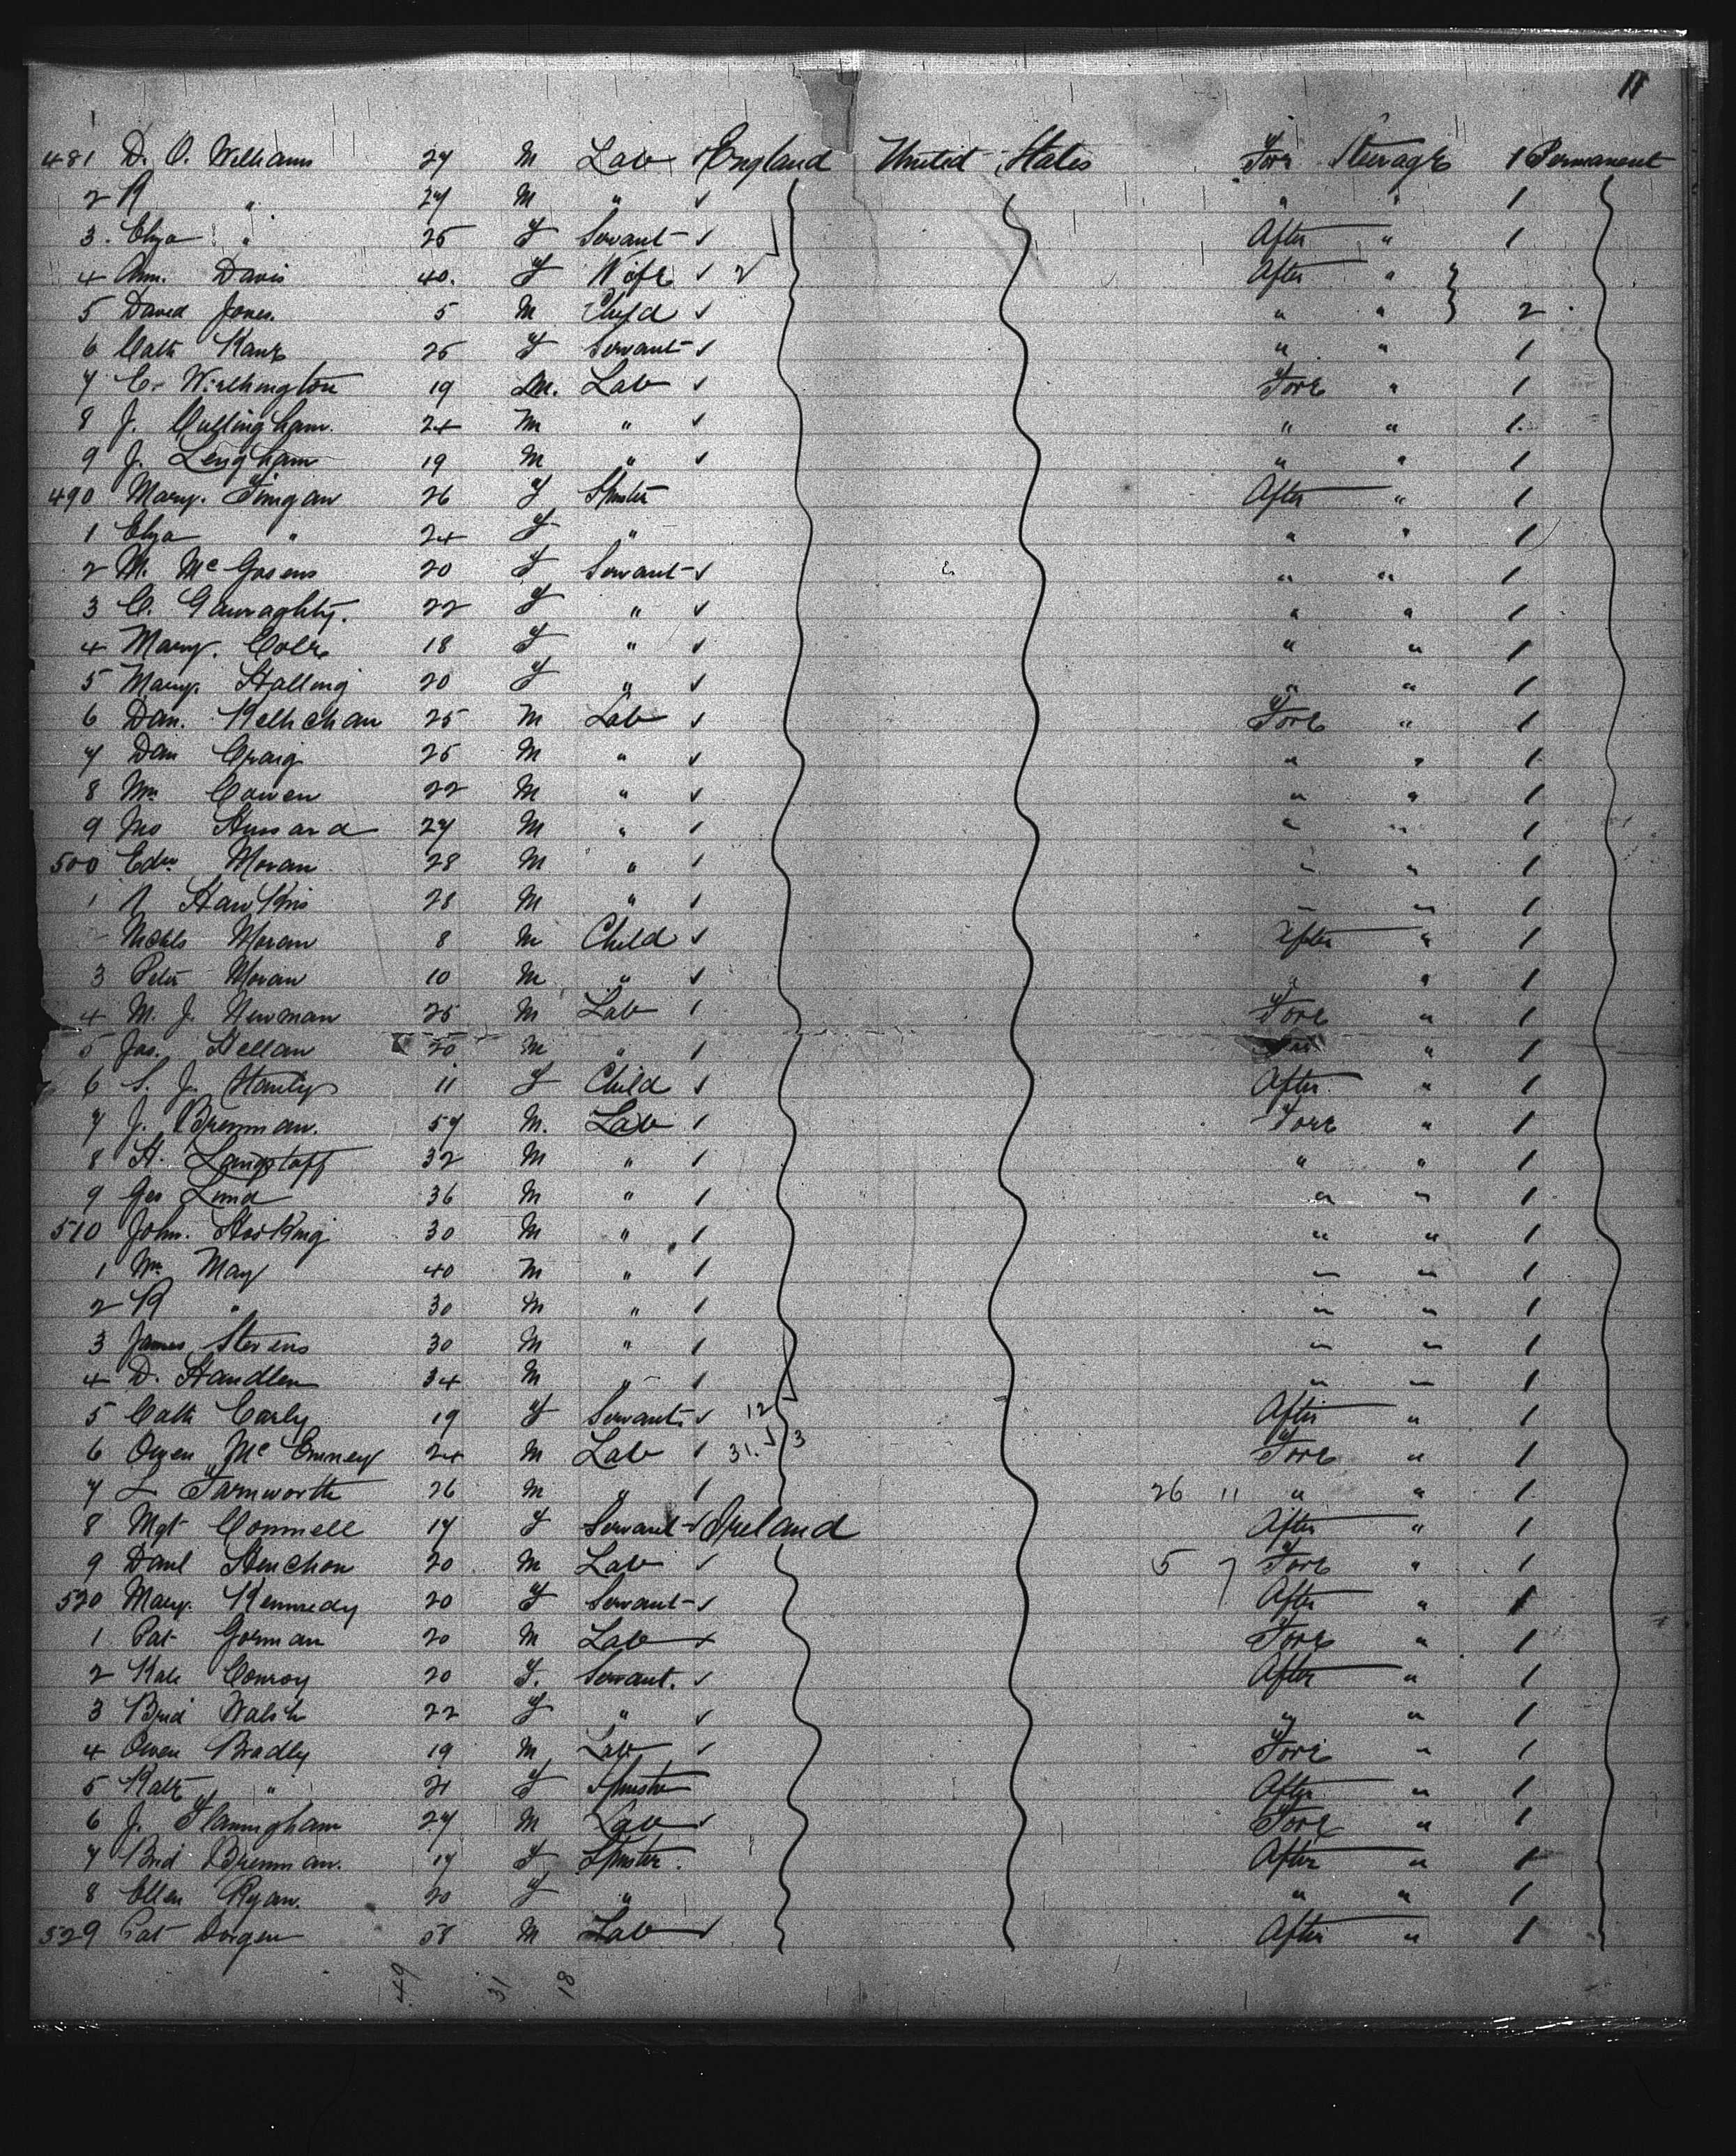 11
481 D. O. Williams 27 M Lab ✓ England United States Fore Steerage 1 Permanent
2 R " 27 M " ✓ " " 1
3 Eliza " 25 F Servant ✓ After " 1
4 Ann. Davis 40. F Wife ✓ 2 After "
5 David Jones. 5 M Child ✓ " " 2
6 Cath Kane 25 F Servant ✓ " " 1
7 C. Withington 19 M. Lab ✓ Fore " 1
8 J. Cullingham. 24 M " ✓ " " 1
9 J. Lengham 19 M " ✓ " " 1
490 Mary. Finigan 26 F Spinster After " 1
1 Eliza " 24 F " " " 1
2 M. McGovern 20 F Servant ✓ " " 1
3 C. Gawraghty. 22 F " ✓ " " 1
4 Mary. Cole 18 F " ✓ " " 1
5 Mary. Halling 20 F " ✓ " " 1
6 Dan. Kellichan 25 M Lab ✓ Fore " 1
7 Dan Craig 25 M " ✓ " " 1
8 Wm Cowen 22 M " ✓ " " 1
9 Jno Hussard 27 M " / " " 1
500 Edw Moran 28 M " / " " 1
1 Hawkins 28 M " / " " 1
Mchls Moran 8 M Child ✓ After " 1
3 Peter Moran 10 M " ✓ " " 1
4 M. J. Newman 25 M Lab / Fore " 1
5 Jas. Hellan 20 M " / " 1
6 S. J. Hanly 11 F Child ✓ After " 1
7 J. Brennan. 57 M. Lab / Fore " 1
8 H. Langstaff 32 M " / " " 1
9 Geo Lund 36 M " / " " 1
510 John. Hosking 30 M " / " " 1
1 Wm May 40 M " / " " 1
2 R " 30 M " / " " 1
3 James Stevens 30 M " / " " 1
4 D. Handlen 34 M " / " " 1
5 Cath Carly 19 F Servant. ✓ 12 After " 1
6 Owen McEnney 24 M Lab / 31. 3 Fore " 1
7 L Farnworth 26 M " / 26 11 " " 1
8 Mgt Connell 17 F Servant ✓ Ireland After " 1
9 Danl Henchon 20 M Lab ✓ 5 7 Fore " 1
520 Mary. Kennedy 20 F Servant ✓ After " 1
1 Pat Gorman 20 M Lab Fore " 1
2 Kate Conroy 20 F. Servant. ✓ After " 1
3 Brid Walsh 22 F " ✓ " " 1
4 Owen Bradly 19 M Lab ✓ Fore " 1
5 Kate " 21 F Spinster After " 1
6 J. Flanningham 27 M Lab ✓ Fore " 1
7 Brid Brennan. 17 F Spinster. After " 1
8 Ellen Ryan. 20 F " " " 1
529 Pat Dorgen 58 M Lab ✓ After " 1
49 31 18